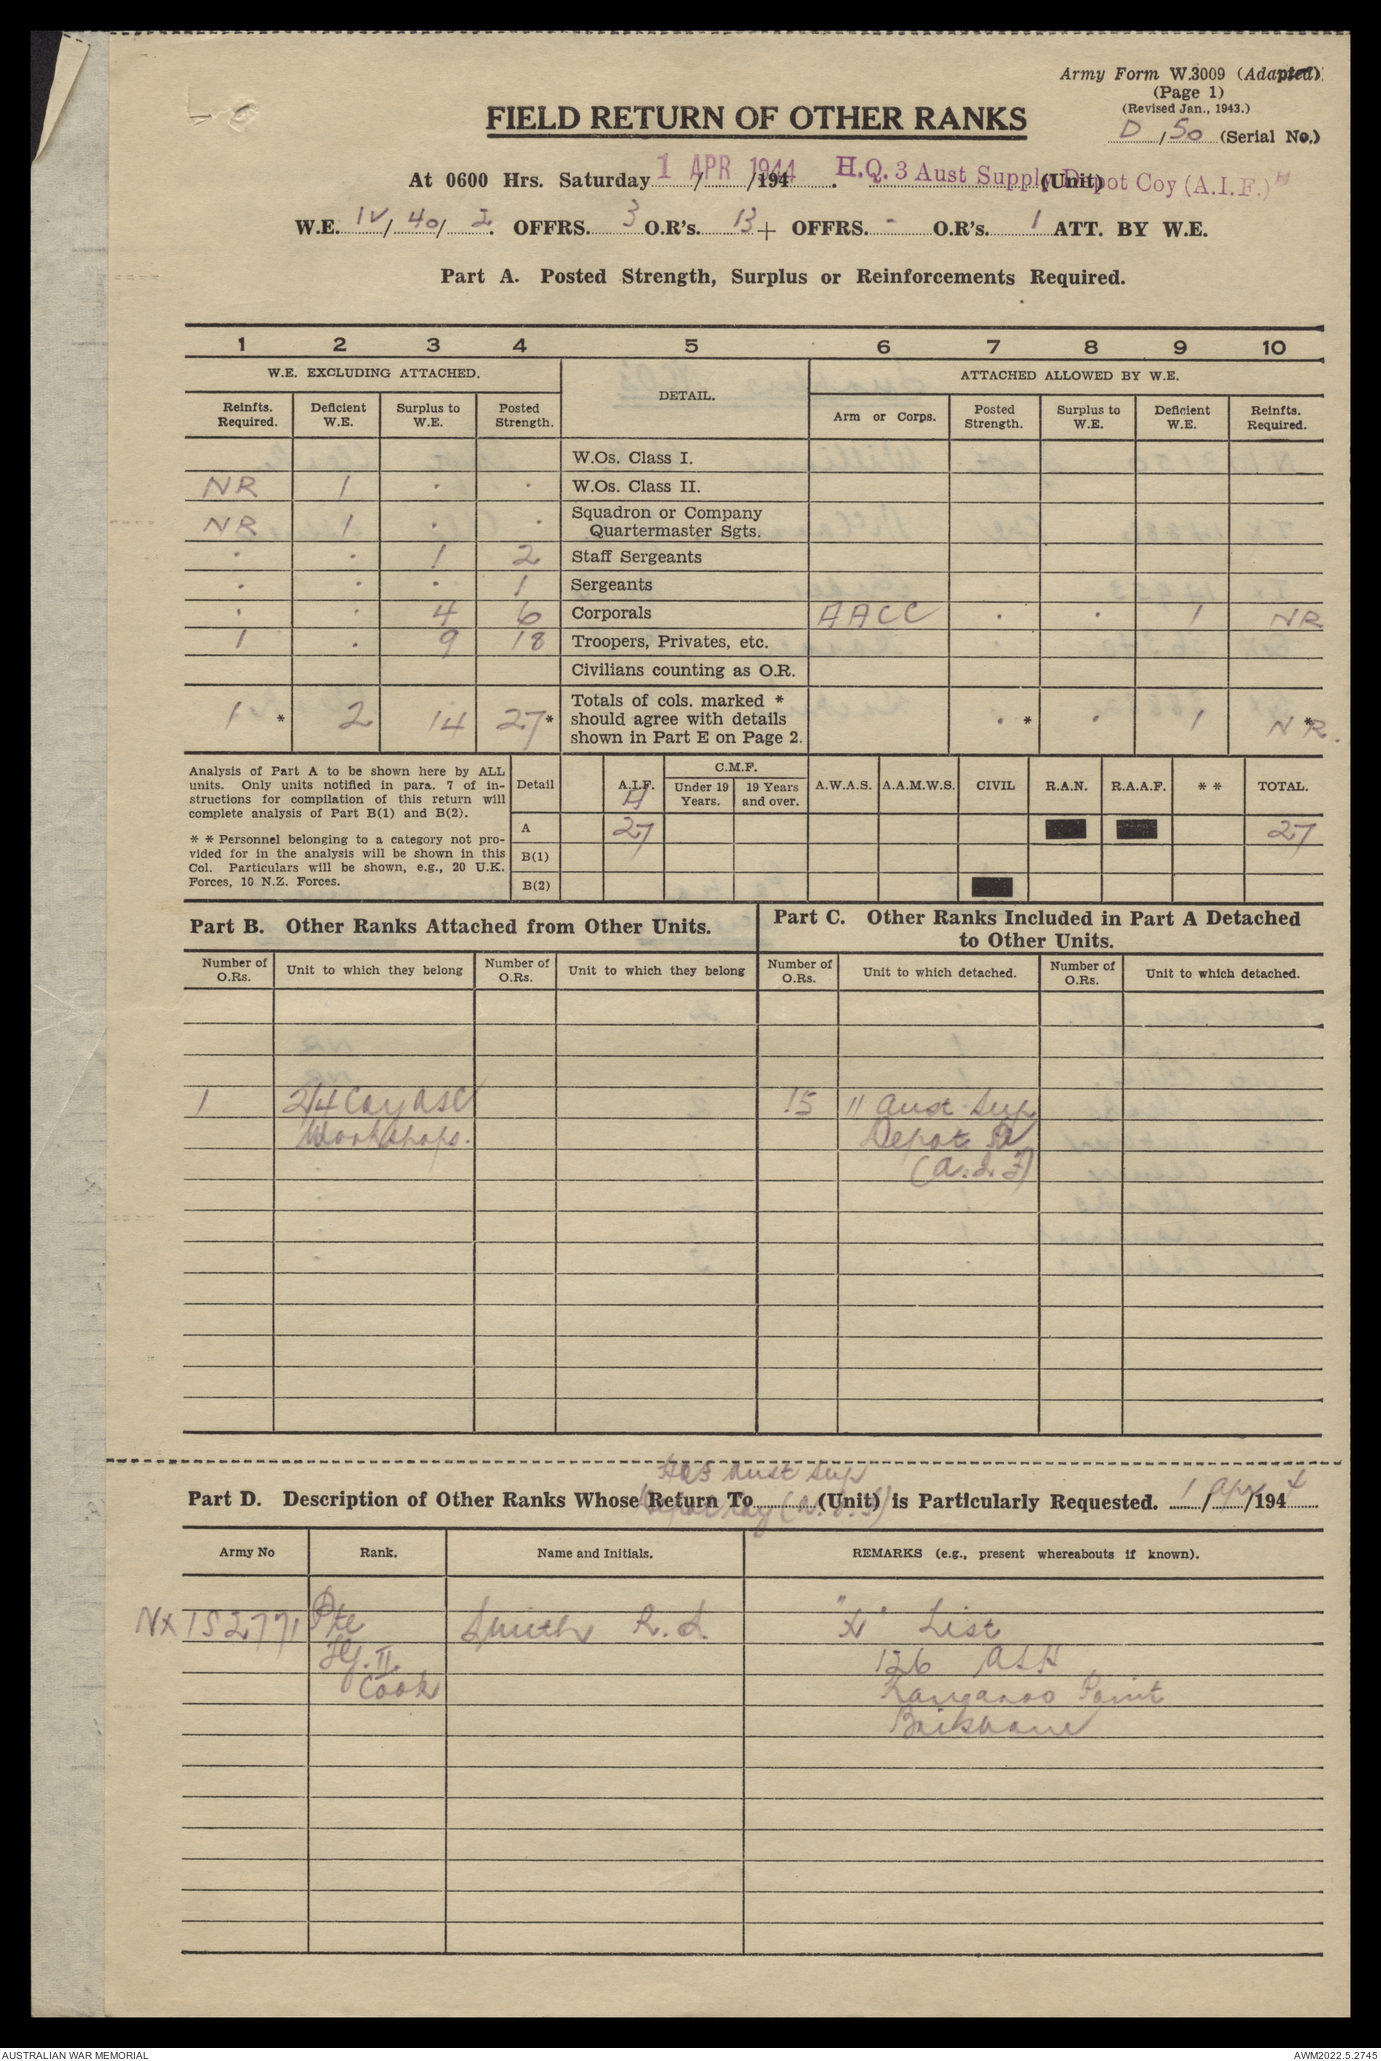 Army Form W.3009 (Adapted)
(Page 1)
(Revised Jan., 1943.)
FIELD RETURN OF OTHER RANKS
D / 50 (Serial No.)
At 0600 Hrs. Saturday 1 APR 1944 /194 . H.Q. 3 Aust Supply Depot Coy (A.I.F.) (Unit)
W.E. IV / 40 / 2. OFFRS. 3 O.R's. 13 + OFFRS. - O.R's. 1 ATT. BY W.E.
Part A. Posted Strength, Surplus or Reinforcements Required.
1 2 3 4 5 6 7 8 9 10
W.E. EXCLUDING ATTACHED. DETAIL. ATTACHED ALLOWED BY W.E.
Reinfts. Required. Deficient W.E. Surplus to W.E. Posted Strength. Arm or Corps. Posted Strength. Surplus to W.E. Deficient W.E. Reinfts. Required.
W.Os. Class I.
NR 1 . . W.Os. Class II.
NR 1 . . Squadron or Company Quartermaster Sgts.
. . 1 2 Staff Sergeants
. . . 1 Sergeants
. . 4 6 Corporals AACC . . 1 NR
1 . 9 18 Troopers, Privates, etc.
Civilians counting as O.R.
1 * 2 14 27 * Totals of cols. marked * should agree with details shown in Part E on Page 2. . * . 1 NR. *
Analysis of Part A to be shown here by ALL
units. Only units notified in para. 7 of in-
structions for compilation of this return will
complete analysis of Part B(1) and B(2).
* * Personnel belonging to a category not pro-
vided for in the analysis will be shown in this
Col. Particulars will be shown, e.g., 20 U.K.
Forces, 10 N.Z. Forces.
Detail A.I.F. C.M.F. Under 19 Years. 19 Years and over. A.W.A.S. A.A.M.W.S. CIVIL R.A.N. R.A.A.F. * * TOTAL.
A 27 27
B(1)
B(2)
Part B. Other Ranks Attached from Other Units.
Part C. Other Ranks Included in Part A Detached
to Other Units.
Number of O.Rs. Unit to which they belong Number of O.Rs. Unit to which they belong Number of O.Rs. Unit to which detached. Number of O.Rs. Unit to which detached.
1 2/4 Coy ASC 15 11 Aust Sup
Workshops. Depot Pl
(A.I.F)
HQ3 Aust Sup
Depot Coy (A.I.F)
Part D. Description of Other Ranks Whose Return To (Unit) is Particularly Requested. 1 / Apr /194 4
Army No Rank. Name and Initials. REMARKS (e.g., present whereabouts if known).
NX152771 Pte Smith R. "X" List
Gp. II 126 ASH
Cook Kangaroo Point
Brisbane
AUSTRALIAN WAR MEMORIAL
AWM2022.5.2745